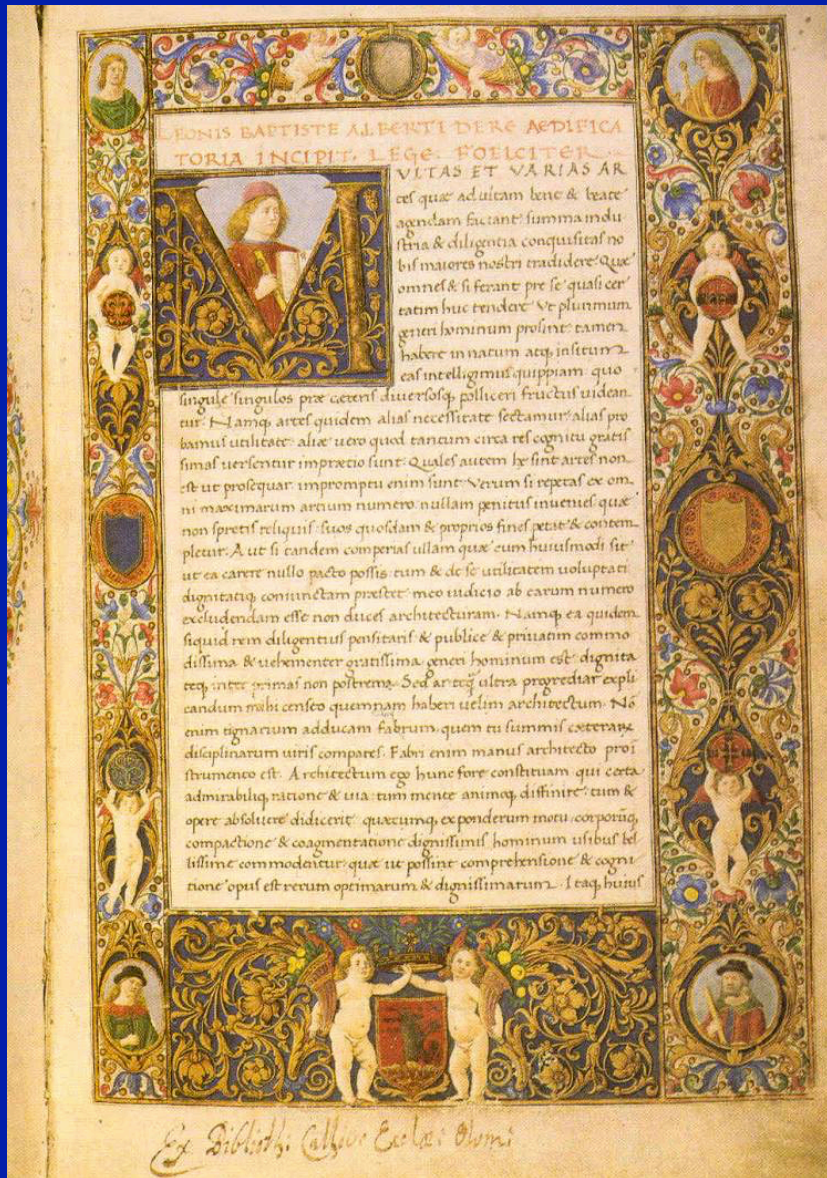 LEONIS BAPTISTE ALBERTI DE RE AEDIFICA
TORIA INCIPIT. LEGE. FOELICITER.
MVLTAS ET VARIAS AR
tes quae ad uitam bene & beate
agendam faciant summa indu
stria & diligentia conquisitas no
bis maiores nostri tradidere. Quae
omnes & si ferant pre se quasi cer
tatim huc tendere Vt plurimum
generi hominum prosint tamen
habere innatum atq; insitum
eas intelligimus quippiam quo
singule singulos prae ceteris diuersosq; polliceri fructus uidean
tur. Namq; artes quidem alias necessitate sectamur alias pro
bamus utilitate aliae uero quod tantum circa res cognitu gratis
simas uersentur impraecio sunt. Quales autem he sint artes non
est ut prosequar impromptu enim sunt. Verum si repetas ex om
ni maximarum artium numero nullam penitus inuenies quae
non spretis reliquis suos quosdam & proprios fines petat & contem
pletur. Aut si tandem comperias ullam quae cum huiusmodi sit
ut ea carere nullo pacto possis tum & de se utilitatem uoluptati
dignitatiq; coniunctam praestet meo iudicio ab earum numero
excludendam esse non duces architecturam. Namq; ea quidem
siquid rem diligentius pensitaris & publice & priuatim commo
dissima & uehementer gratissima generi hominum est dignita
teq; inter primas non postrema. Sed anteq̃ ultra progrediar expli
candum mihi censeo quemnam haberi uelim architectum. Nõ
enim tignarium adducam fabrum, quem tu summis ceterarum
disciplinarum uiris compares. Fabri enim manus architecto pro i
strumento est. Architectum ego hunc fore constituam qui certa
admirabiliq; ratione & uia tum mente animoq; diffinire tum &
opere absoluere didicerit quaecumq; ex ponderum motu corporũq;
compactione & coagmentatione dignissimis hominum usibus bel
lissime commodentur quae ut possint comprehensione & cogni
tione opus est rerum optimarum & dignissimarum. Itaq; huius
Ex